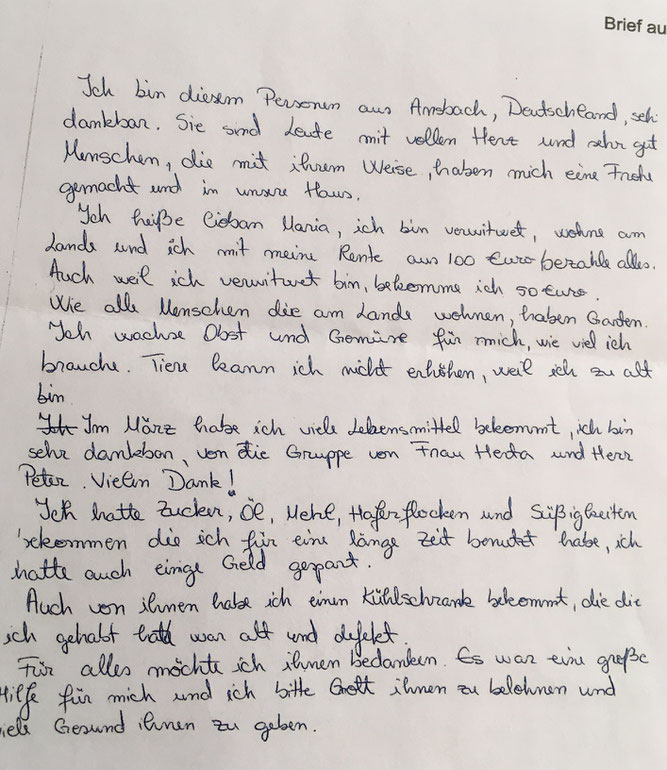 Brief au
Ich bin diesem Personen aus Ansbach, Deutschland, seh
dankbar. Sie sind Leute mit vollen Herz und sehr gut
Menschen, die mit ihrem Weise, haben mich eine Frohe
gemacht und in unsere Haus.
Ich heiße Cioban Maria, ich bin verwitwet, wohne am
Lande und ich mit meine Rente aus 100 Euro bezahle alles.
Auch weil ich verwitwet bin, bekomme ich 50 Euro.
Wie alle Menschen die am Lande wohnen, haben Garten.
Ich wachse Obst und Gemüse für mich, wie viel ich
brauche. Tiere kann ich nicht erhöhen, weil ich zu alt
bin.
Ich Im März habe ich viele Lebensmittel bekommt, ich bin
sehr dankbar, von die Gruppe von Frau Herta und Herr
Peter. Vielin Dank!
Ich hatte Zucker, Öl, Mehl, Haferflocken und Süßigkeiten
bekommen die ich für eine länge Zeit benutzt habe, ich
hatte auch einige Geld gespart.
Auch von ihnen habe ich einen Kühlschrank bekommt, die die
ich gehabt war alt und defekt.
Für alles möchte ich ihnen bedanken. Es war eine große
Hilfe für mich und ich bitte Gott ihnen zu belohnen und
iele Gesund ihnen zu geben.